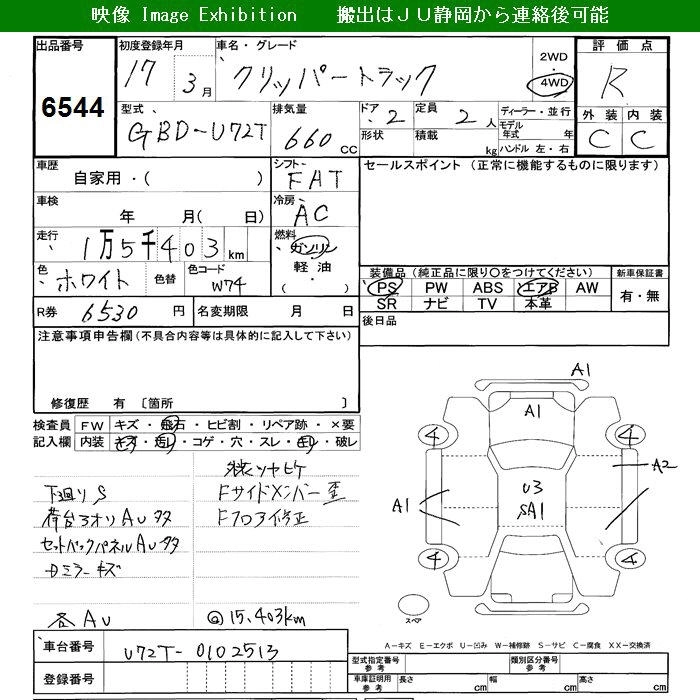 映像 Image Exhibition 搬出はＪＵ静岡から連絡後可能
出品番号
6544
初度登録年月
17 3月
車名・グレード
クリッパートラック
2WD
4WD
評価点
R
外装 内装
C C
型式
GBD-U72T
排気量
660 CC
ドア 2
形状
定員 2人
積載 kg
ディーラー・並行
モデル年式 年
ハンドル 左・右
車歴
自家用・( )
シフト
FAT
セールスポイント (正常に機能するものに限ります)
車検
年 月( 日)
冷房
AC
走行
1万5千403km
燃料
ガソリン
軽油
( )
色
ホワイト
色替
色コード
W74
装備品 (純正品に限り〇をつけてください)
PS PW ABS エアB AW
SR ナビ TV 本革
新車保証書
有・無
R券 6530円
名変期限 月 日
後日品
注意事項申告欄(不具合内容等は具体的に記入して下さい)
修復歴 有 〔箇所 〕
検査員記入欄
FW キズ・飛石・ヒビ割・リペア跡・×要
内装 キズ・汚レ・コゲ・穴・スレ・切レ・破レ
下廻りS
荷台3オリAUタタ
セットバックパネルAUタタ
Dミラーキズ
各AU
Fサイドメンバー歪
Fフロア修正
@15,403km
A1
A1
4 4
A2
A1
U3
SA1
4 4
スペア
A－キズ E－エクボ U－凹み W－補修跡 S－サビ C－腐食 XX－交換済
車台番号
U72T-0102513
登録番号
型式指定番号
参考
類別区分番号
参考
車庫証明用
参考
長さ cm
幅 cm
高さ cm